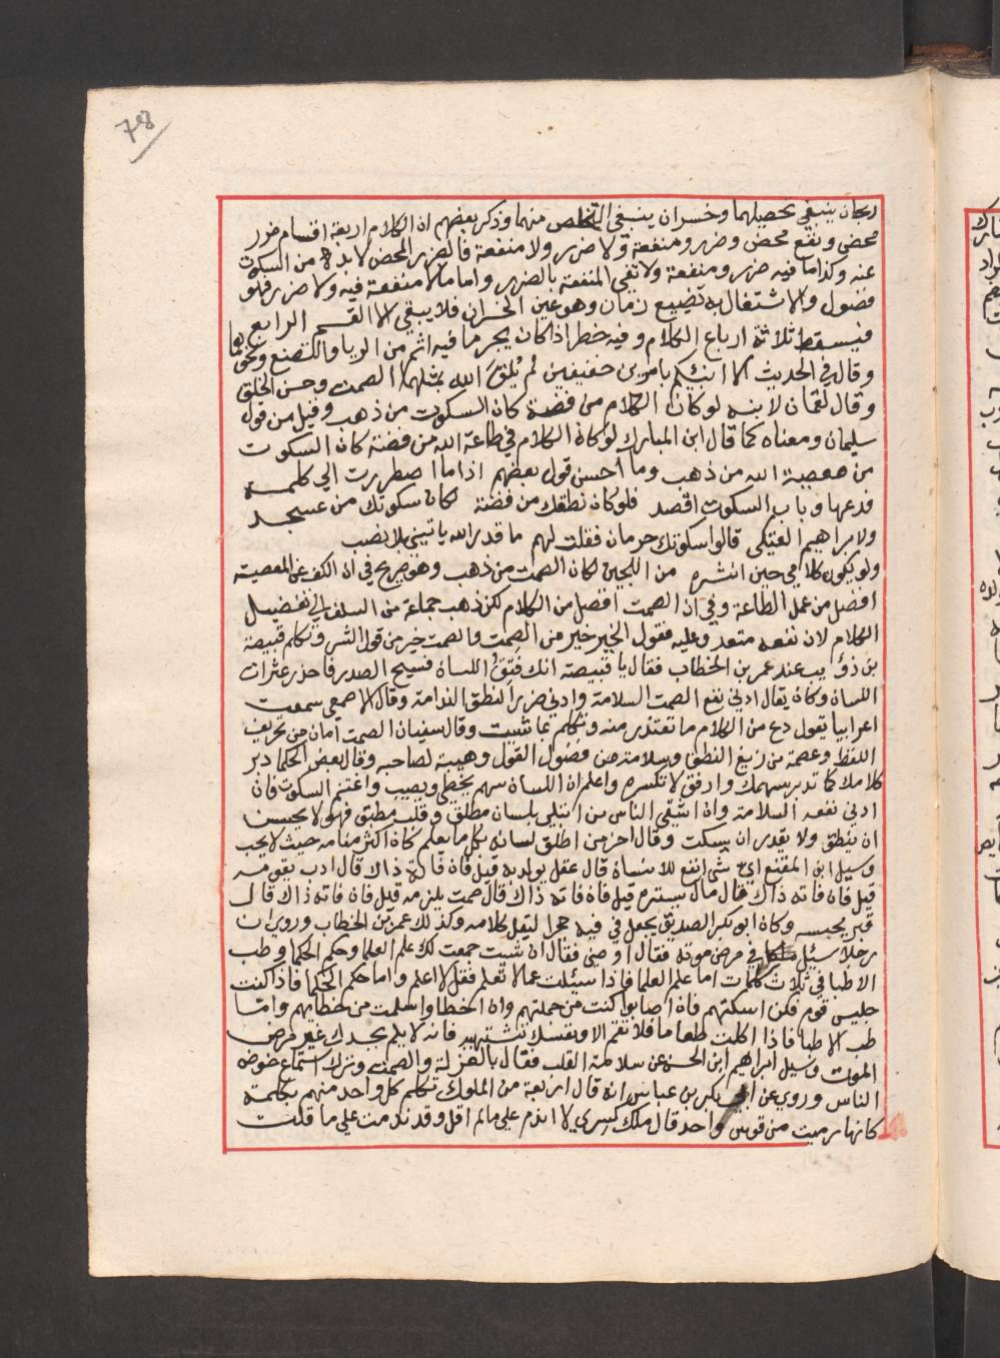 78
ربحان ينبغي تحصيلهما وخسران ينبغي التخلص منهما وذكر بعضهم ان الكلام اربعة اقسام ضرر
محض ونفع محض وضرر ومنفعة ولا ضرر ولا منفعة فالضرر المحض لا بد من السكوت
عنه وكذا ما فيه ضرر ومنفعة ولا تفي المنفعة بالضرر واما ما لا منفعة فيه ولا ضرر فهو
فضول والاشتغال به تضييع زمان وهو عين الخسران فلا يبقي الا القسم الرابع
فيسقط ثلاثة ارباع الكلام وفيه خطر اذا كان يجر ما فيه اثم من الريا والتصنع ونحوهما
وقال في الحديث الا انبئكم بامرين خفيفين لم يُلقَ الله بمثلهما الصمت وحسن الخلق
وقال لقمان لابنه لو كان الكلام من فضة كان السكوت من ذهب وقيل من قول
سليمان ومعناه كما قال ابن المبارك لو كان الكلام في طاعة الله من فضة كان السكوت
من معصية الله من ذهب وما احسن قول بعضهم اذا ما اضطررت الي كلمة
فدعها وباب السكوت اقصد فلو كان نطقك من فضة لكان سكوتك من عسجد
ولابراهيم العتيكي قالوا سكوتك حرمان فقلت لهم ما قدر الله ياتيني بلا نصب
ولو يكون كلامي حين انشره من اللجين لكان الصمت من ذهب وهو صريح في ان الكف عن المعصية
افضل من عمل الطاعة وفي ان الصمت افضل من الكلام لكن ذهب جماعة من السلف الي تفضيل
الكلام لان نفعه متعد وعليه فقول الخير خير من الصمت والصمت خير من قول الشر وتكلم قبيصة
بن ذؤيب عند عمر بن الخطاب فقال يا قبيصة انك فتِقُ اللسان فسيح الصدر فاحذر عثرات
اللسان وكان يقال ادني نفع الصمت السلامة وادني ضرر النطق الندامة وقال الاصمعي سمعت
اعرابيا يقول دع من الكلام ما تعتذر منه وتكلم بما شئت وقال سفيان الصمت امان من تحريف
اللفظ وعصمة من زيغ النطق وسلامة من فضول القول وهيبة لصاحبه وقال بعض الحكما دبر
كلامك كما تدبر سهمك وارفق لا تكسره واعلم ان اللسان سهم يخطي ويصيب واغتنم السكوت فان
ادني نفعه السلامة وان اشقي الناس من ابتلي بلسان مطلق وقلب مطبق فهو لا يحسن
ان ينطق ولا يقدر ان يسكت وقال اخر من اطلق لسانه بكل ما يعلم كان اكثر مقامه حيث لا يحب
وسيل ابن المقفع اي شي انفع للانسان قال عقل يولد به قيل فان فاته ذاك قال ادب يقومه
قيل فان فاته ذاك قال مال يستره قيل فان فاته ذاك قال صمت يلزمه قيل فان فاته ذاك قال
قبر يحبسه وكان ابو بكر الصديق يجعل في فيه حجرا ليقل كلامه وكذلك عمر بن الخطاب وروي ان
رجلا سيل في مرض موته فقال اوصني فقال ان شيت جمعت لك علم العلما وحكم الحكما وطب
الاطبا في ثلاث كلمات اما علم العلما فاذا سئلت عما لا تعلم فقل لا اعلم واما حكم الحكما فاذا كنت
جليس قوم فكن اسكتهم فان اصابوا كنت من جملتهم وان اخطاوا سلمت من خطايهم واما
طب الاطبا فاذا اكلت طعاما فلا تقم الا ونفسك تشتهيه فانه لا يلم بجسدك غير مرض
الموت وسيل ابراهيم ابن الحسن عن سلامة القلب فقال بالعزلة والصمت وترك استماع خوض
الناس وروي عن ابي بكر بن عباس انه قال اربعة من الملوك تكلم كل واحد منهم بكلمة
كانها رميت من قوس واحد قال ملك كسري لا اندم علي ما لم اقل وقد ندمت علي ما قلت